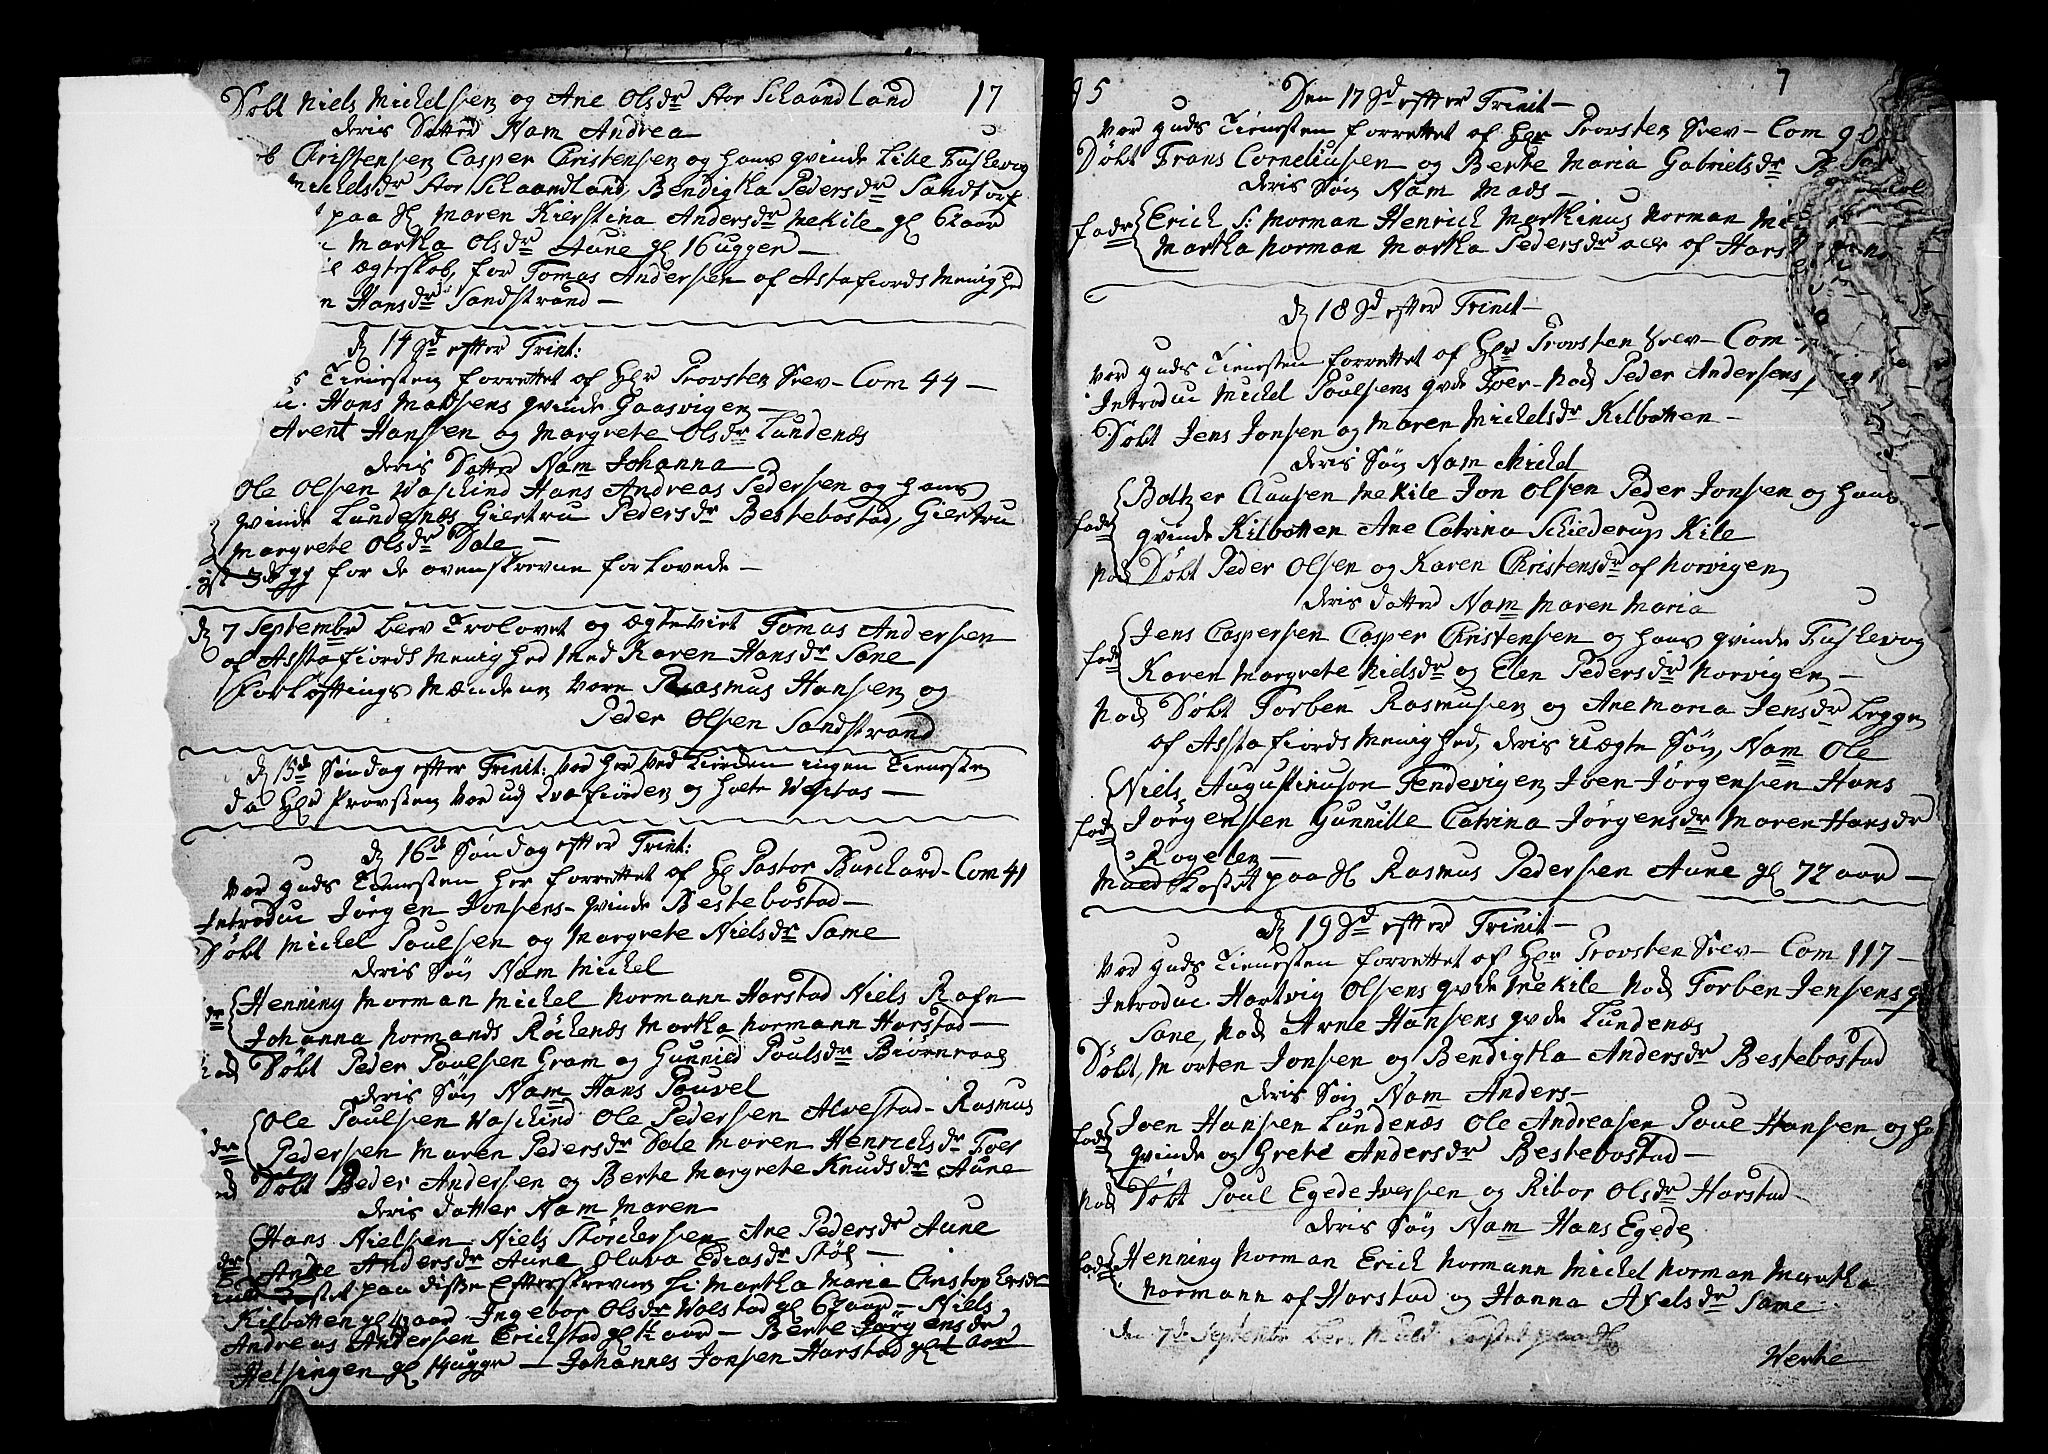 Døbt Niels Michelsen og Ane Olsdr Stor Schaandland 17
deris Datter Nam Andrea
Christensen Casper Christensen og hans qvinde Lille Fuslevog
Michelsdr Stor Schaandland, Bendigtha Pedersdr Sandtorf
paa Maren Kierstina Andersdr Mekile gl 62 aar
Martha Olsdr Aune gl 16 ugger
ægteskab, for Tomas Andersen af Astafiords Menighed
Hansdr Sandstrand
14 Sd efter Trint:
Tienesten forrettet af Hr Provsten Srev - Com 44
Hans Madsens qvinde Gaasvigen
Arent Hanssen og Margrete Olsdr Lundenæs
deris Datter Nam Johanna
Ole Olsen Vaschind Hans Andreas Pedersen og hans
qvinde Lundenæs Giertru Pedersdr Bestebostad, Giertru
Margrete Olsdr Dale
3de gg for de ovenskrevne forlovede
7 Septembr blev Trolovet og ægteviet Tomas Andersen
af Asstafiords Menighed med Karen Hansdr Sane
Forløftings Mændene vare Rasmus Hansen og
Peder Olsen Sandstrand
15d Søndag efter Trinit: var her ved Kierken ingen Tieneste
da Hr Provsten var ud i Qvafiorden og holte Visitas
16d Søndag efter Trint:
var guds Tienesten her forrettet af Hr Pastor Burchard - Com 41
Introduc Jørgen Jonsens qvinde Bestebostad
Døbt Michel Poulsen og Margrete Nielsdr Same
deris Søn Nam Michel
Henning Norman Michel Normann Harstad Niels Rafn
Johanna Normands Røchenæs Martha Normann Harstad
Døbt Peder Poulsen Gram og Gunnild Poulsdr Biørnraae
deris Søn Nam Hans Pouvel
Ole Poulsen Vaschind Ole Pedersen Alvestad - Rasmus
Pedersen Maren Pedersdr Dale Maren Henrichsdr Foer
Døbt Peder Andersen og Berte Margrete Knudsdr Aune
deris datter Nam Maren
Hans Nielsen Niels Størchersen Ane Pedersdr Aune
Anne Andersdr Aune Olava Ediasdr Støl
paa disse efterskrevne Martha Maria Christophersdr
Kilbotten gl aar - Ingebor Olsdr Volstad gl 67 aar - Niels
Andreas Andersen Erichstad gl aar - Berte Jørgensdr
Helsingen gl 14 ugge - Johannes Jonsen Harstad gl aar
95 Den 17 Sd efter Trinit 7
var guds Tienesten forrettet af Hr Provsten Srev - Com 90
Døbt Frans Corneliusen og Berte Maria Gabrielsdr
deris Søn Nam Mads
fadr Erich Norman Henrich Marthinus Norman
Martha Norman Martha Pedersdr alle af Harstad
18 Sd efter Trinit
var guds Tienesten forrettet af Hr Provsten Srev - Com
Introduc Michel Poulsens qvde Foer - nok Peder Andersens
Døbt Jens Jonsen og Maren Michelsdr Kilbotten
deris Søn Nam Michel
fadr Baltzer Clausen Mekile Jon Olsen Peder Jonsen og hans
qvinde Kilbotten Ane Catrina Schiederup Kile
nok Døbt Peder Olsen og Karen Christensdr af Norvigen
deris datter Nam Maren Maria
fadr Jens Caspersen Casper Christensen og hans qvinde Fuslevog
Karen Margrete Nielsdr og Elen Pedersdr Norvigen
nok Døbt Torben Rasmusen og Anemaria Jensdr begge
af Asstafiords Menighed, deris uægte Søn, Nam Ole
Niels Augustinuson Fendevigen Joen Jørgensen Hans
fadr Jørgensen Gunnille Catrina Jørgensdr Maren Hansdr
Rogelen
Muld kastet paa Rasmus Pedersen Aune gl 72 aar
19 Sd efter Trinit
var guds Tienesten forrettet af Hr Provsten Srev - Com 117
Introduc. Hartvig Olsens qvde Mekile nok Torben Jensens
Sane, nok Arne Hansens qvde Lundenæs
Døbt, Morten Jonsen og Bendigtha Andersdr Bestebostad
deris Søn Nam Anders
fadr Joen Hansen Lundenæs Ole Andreasen Poul Hansen og
qvinde og Grete Andersdr Bestebostad
nok Døbt Poul Egede Iversen og Ribor Olsdr Harstad
deris Søn Nam Hans Egede
fadr Henning Norman Erich Normann Michel Norman Martha
Normann af Harstad og Hanna Axelsdr Same
den 7de Septembr blev Muld kastet paa
Werke